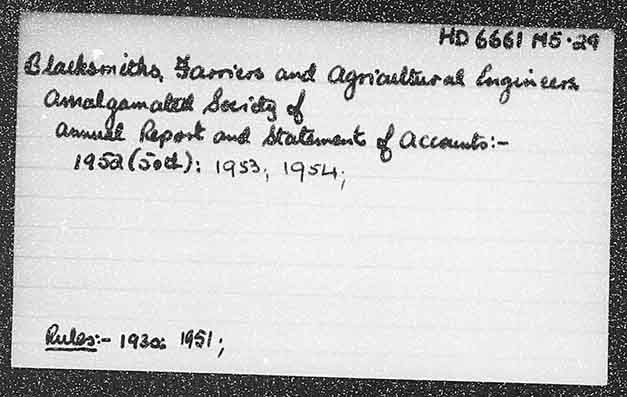 HD 6661 M5·29
Blacksmiths, Farriers and Agricultural Engineers
Amalgamated Society of
Annual Report and Statement of Accounts:-
1952 (50th): 1953; 1954;
Rules:- 1930: 1951;